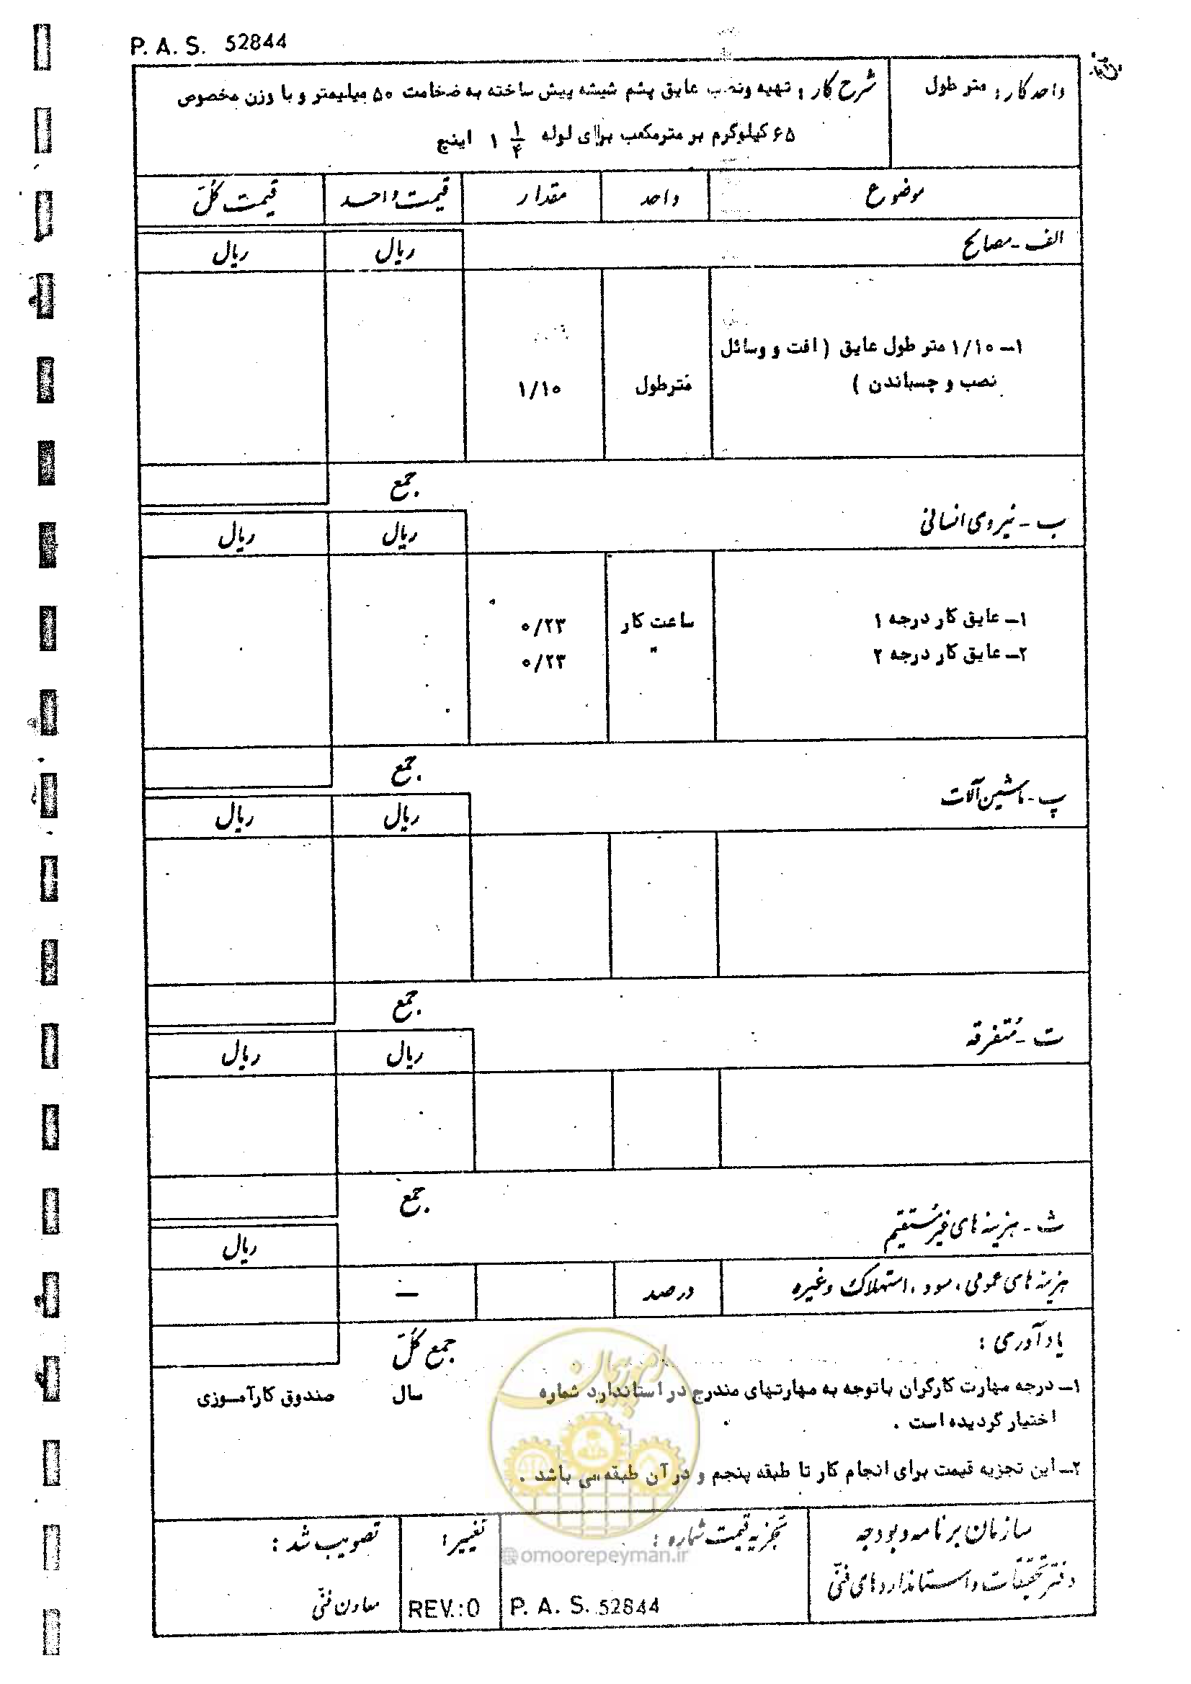 P. A. S. 52844
واحد کار: متر طول
شرح کار: تهیه ونصب عایق پشم شیشه پیش ساخته به ضخامت ۵۰ میلیمتر و با وزن مخصوص
۶۵ کیلوگرم بر مترمکعب برای لوله ۱ ۱/۴ اینچ
موضوع واحد مقدار قیمت واحد قیمت کل
الف - مصالح ریال ریال
۱- ۱/۱۰ متر طول عایق ( افت و وسائل
نصب و چسباندن ) مترطول ۱/۱۰
جمع
ب - نیروی انسانی ریال ریال
۱- عایق کار درجه ۱ ساعت کار ۰/۲۳
۲- عایق کار درجه ۲ " ۰/۲۳
جمع
پ - ماشین آلات ریال ریال
جمع
ت - متفرقه ریال ریال
جمع
ث - هزینه های غیرمستقیم ریال
هزینه های عمومی، سود، استهلاک وغیره درصد —
جمع کل
یادآوری :
۱- درجه مهارت کارگران باتوجه به مهارتهای مندرج در استاندارد شماره سال صندوق کارآموزی
اختیار گردیده است .
۲- این تجزیه قیمت برای انجام کار تا طبقه پنجم و درآن طبقه می باشد .
امور پیمان
@omoorepeyman.ir
سازمان برنامه و بودجه
دفتر تحقیقات و استانداردهای فنی
تجزیه قیمت شماره :
P. A. S. 52844
تغییر:
REV.:0
تصویب شد :
معاون فنی